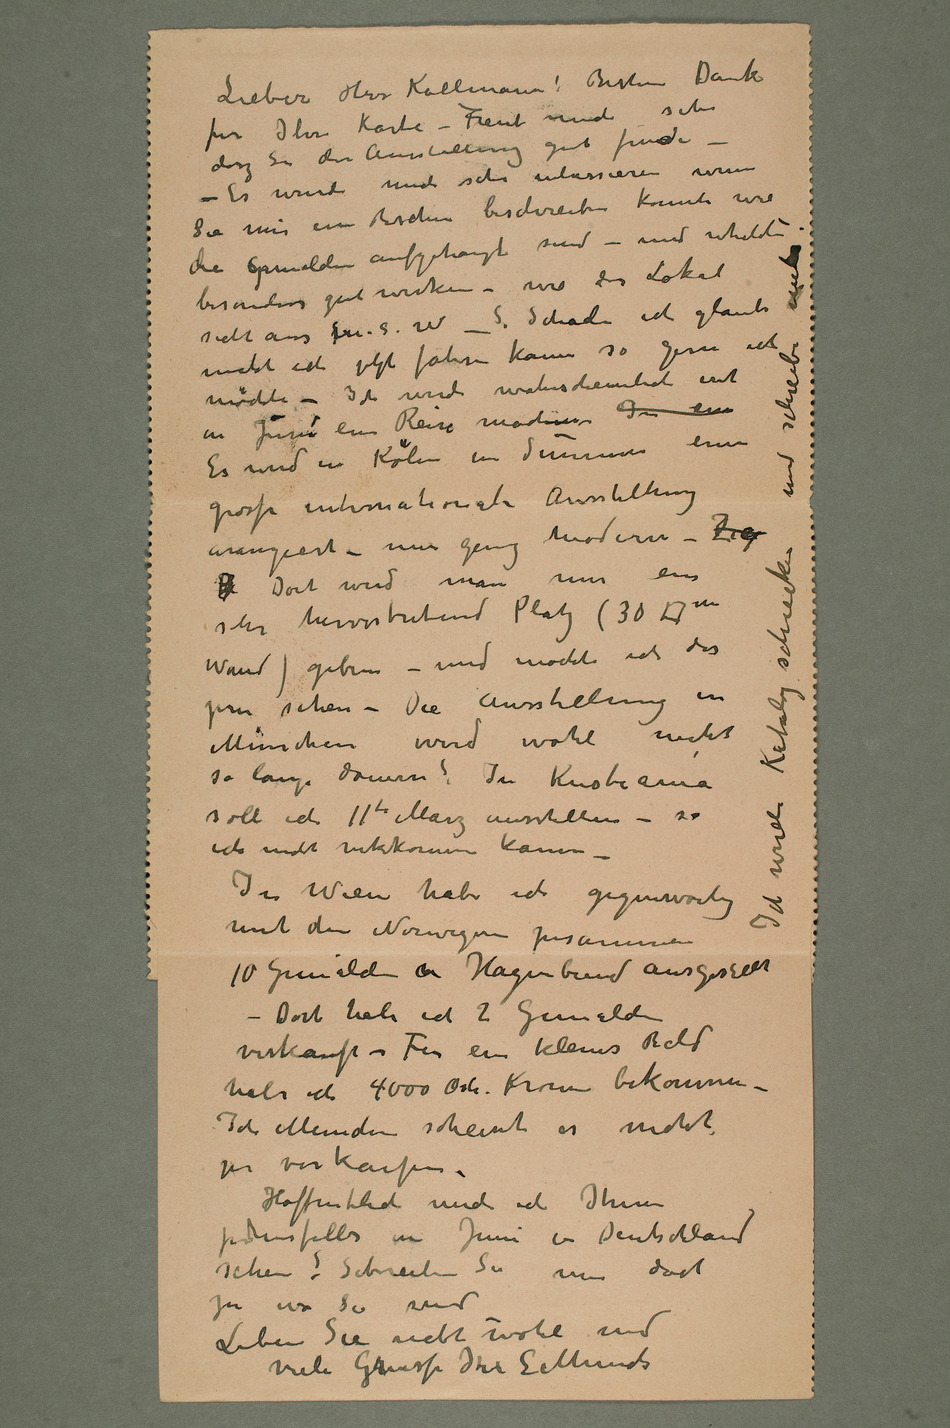 Lieber Herr Kollmann! Besten Dank
für Ihre Karte – Freut mich sehr
dasz Sie die Ausstellung gut finde –
– Es wurde mich sehr interessieren wenn
Sie mir ein Bischen beschreiben konnte wie
die Gemälden aufgehängt sind – und welche
besonders gut wirken – wie das Lokal
sieht aus u. s. w – Schade ich glaube
nicht ich jetzt fahren kann so gern ich
möchte – Ich werde wahrscheinlich erst
in Juni eine Reise machen In em
Es wird in Köln im Summer eine
grosse internationale Ausstellung
arrangiert – nur ganz modern –
Dort wird man mir ein
sehr hervortretend Platz (30 □ m
Wand) geben – und möchte ich das
gern sehen – Die Ausstellung in
München wird wohl nicht
so lange dauern? In Kristiania
soll ich 11te März ausstellen – so
ich nicht wekkommen kann –
In Wien habe ich gegenwärtig
mit den Norwegern zusammen
10 Gemälden in Hagenbund ausgestellt
– Dort habe ich 2 Gemälden
verkauft – Für ein kleines Bild
habe ich 4000 Östr. Kronen bekommen –
In München scheint es nicht
zu verkaufen.
Hoffentlich werde ich Ihnen
jedenfalls in Juni in Deutschland
sehen? Schreiben Sie mir doch
ja wo Sie sind
Leben Sie recht wohl und
viele Grüsse Ihr EdMunch
Ich werde Katalog schicken und schreibe